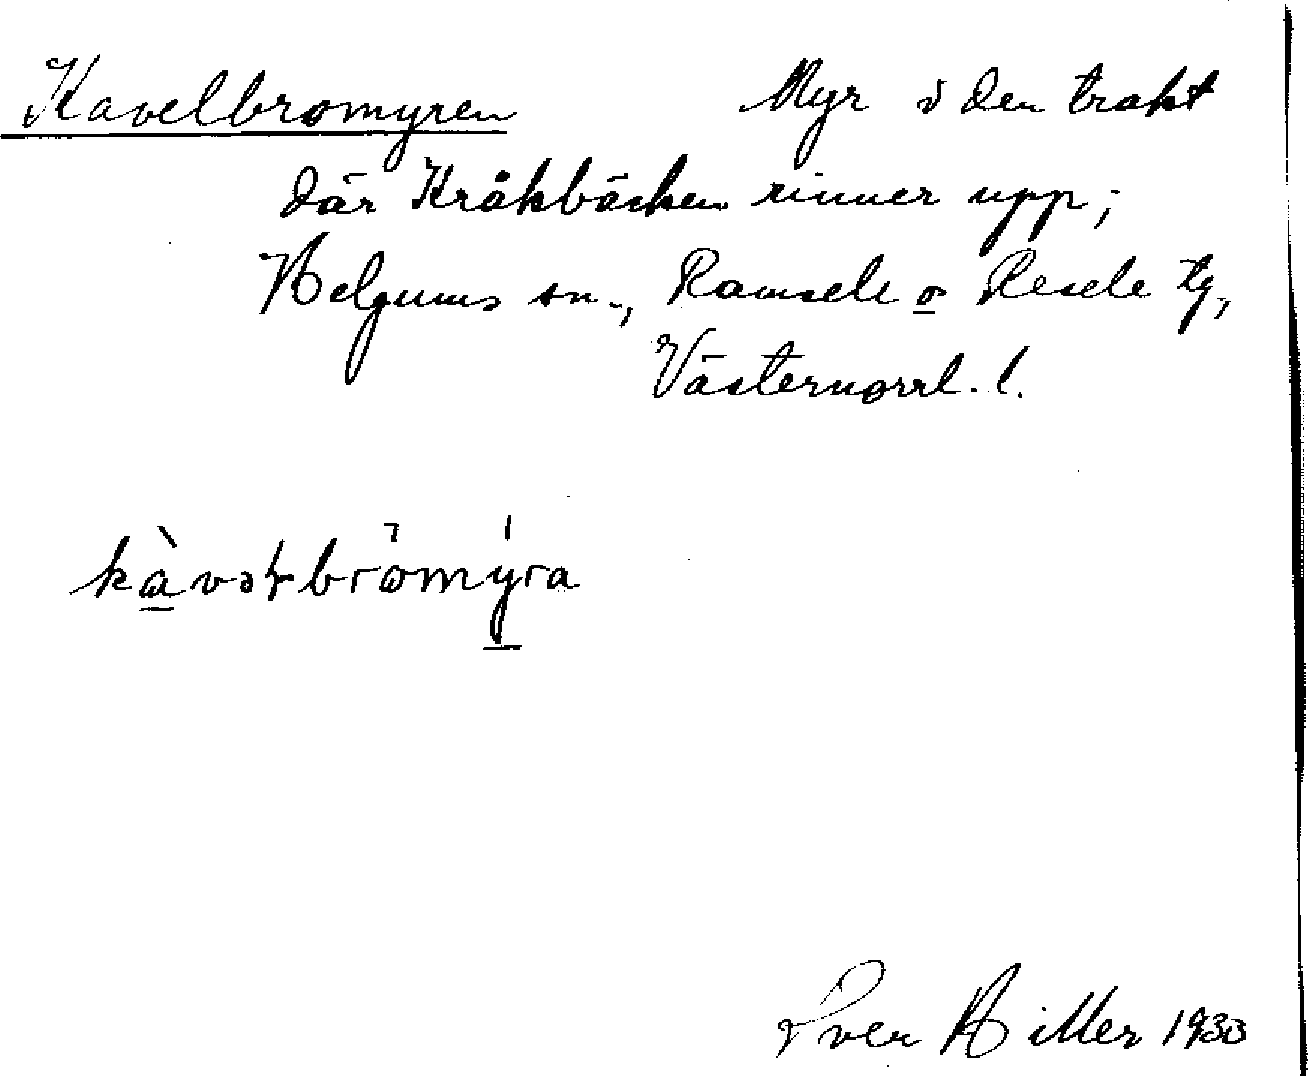 Kavelbromyren Myr i den trakt
där Kråkbäcken rinner upp;
Helgums sn., Ramsele o Resele tg,
Västernorrl. l.
kàvəɽbromýra
Sven Hiller 1933